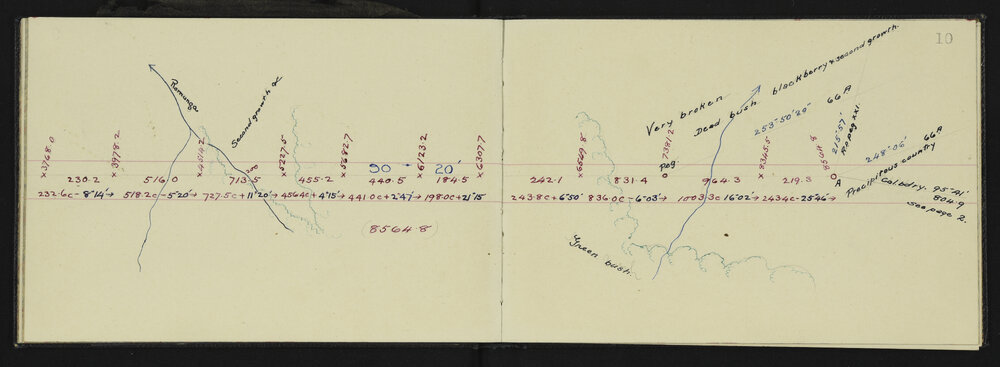 10
Ramunga
Second growth &c
x3768.0
x3978.2
x4514.2
x5227.5
x5682.7
x6123.2
x6307.7
50° 20'
230.2
516.0
713.5
455.2
440.5
184.5
232.6c - 8°14'→
518.2c - 5°20'→
727.5c + 11°20'→
456.4c + 4°15'→
441.0c + 2°47'→
198.0c + 21°15'
(8564.8)
Very broken
Dead bush blackberry & second growth.
253°50'20" 66A
215°57'
R.O. peg XXI.
248°06' 66A
Precipitous country
Cal^d ody. 95°41'
804.9
see page 2.
x6549.8
7381.2
Peg.
x8345.5
8564.8
A
242.1
831.4
964.3
219.3
243.8c + 6°50'
836.0c - 6°03'→
1003.3c 16°02'→
243.4c - 25°46'→
Green bush.